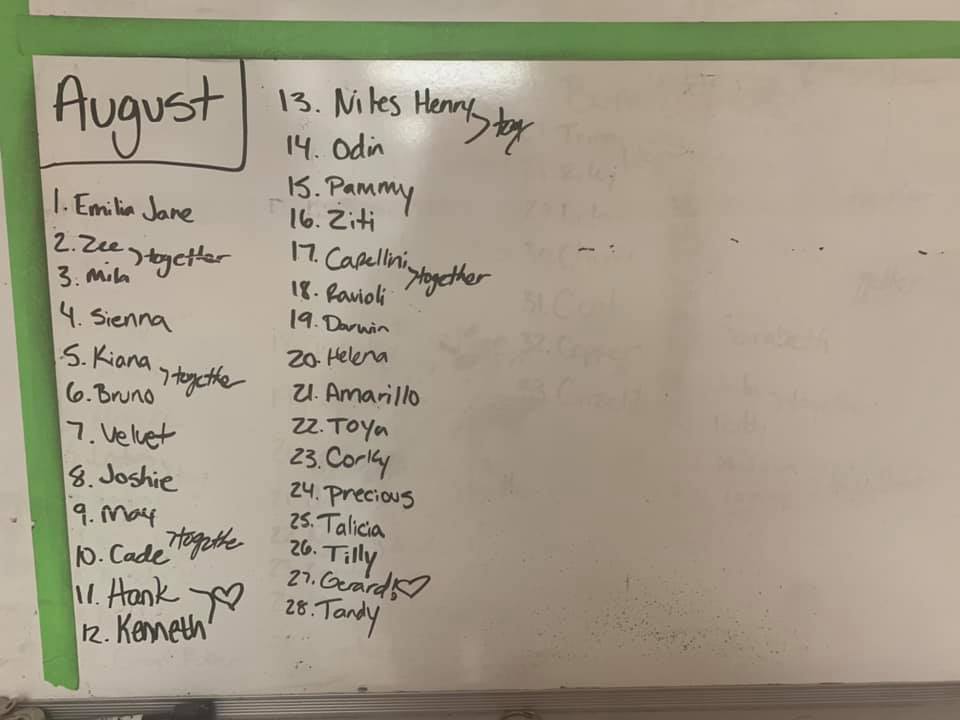 August
1. Emilia Jane
2. Zee
together
3. Mila
4. Sienna
5. Kiana
together
6. Bruno
7. Velvet
8. Joshie
9. May
together
10. Cade
11. Hank
12. Kenneth
13. Niles Henry
tog
14. Odin
15. Pammy
16. Ziti
17. Capellini
together
18. Ravioli
19. Darwin
20. Helena
21. Amarillo
22. Toya
23. Corky
24. Precious
25. Talicia
26. Tilly
27. Gerard!
28. Tandy